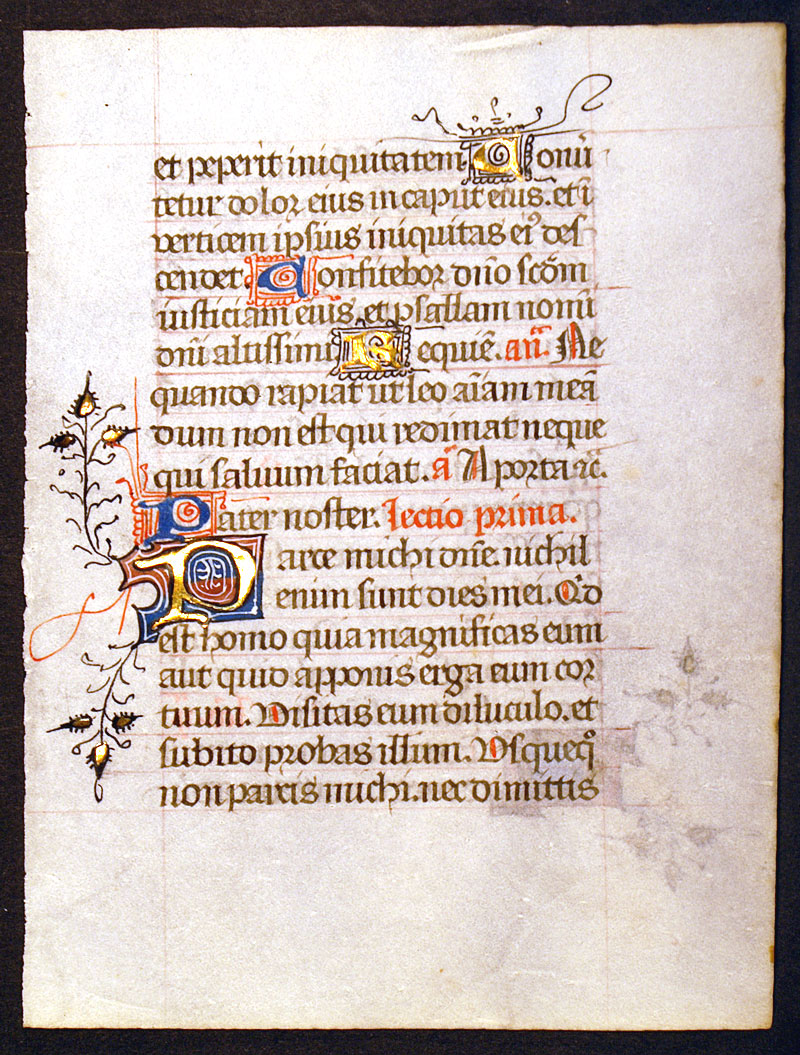 et peperit iniquitatem Conu̅
tetur dolor eius in caput eius. et i̅
verticem ipsius iniquitas eiꝰ des
cendet. Confitebor dn̅o scd̅m
iusticiam eius. et psallam nomi̅
dn̅i altissimi Requie̅. an̅. Ne
quando rapiat ut leo ai̅am mea̅
dum non est qui redimat neque
qui saluum faciat. a̅ A porta ⁊c̅.
Pater noster. lectio prima.
Parce michi dn̅e. nichil
enim sunt dies mei. Qꝰd
est homo quia magnificas eum
aut quid apponis erga eum cor
tuum. Visitas eum diluculo. et
subito probas illum. Vsqueq̊
non parcis michi. nec dimittis